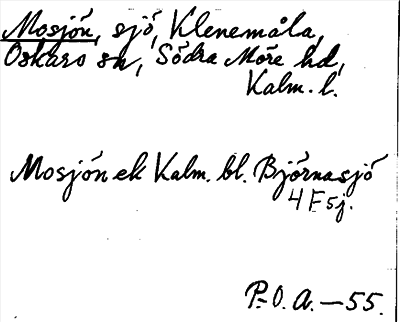 Mosjön, sjö, Klenemåla,
Oskars sn, Södra Möre hd,
Kalm. l.
Mosjön ek Kalm. bl. Björnasjö
4 F 5j.
P.O.A. — 55.